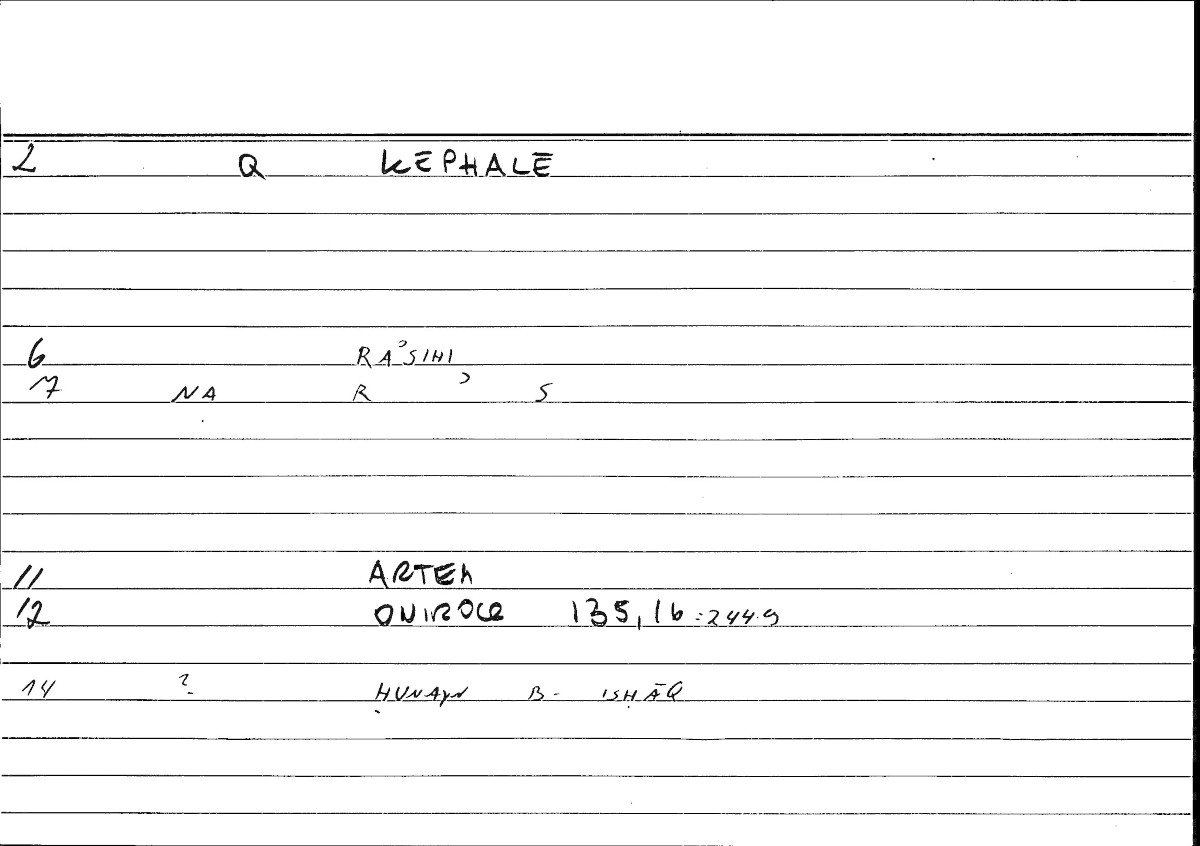 2 Q KĒPHALĒ
6 RAʾSIHI
7 NA R ʾ S
11 ARTEM
12 ONIROCR 135,16 : 244.9
14 ? ḤUNAYN B- ISḤĀQ